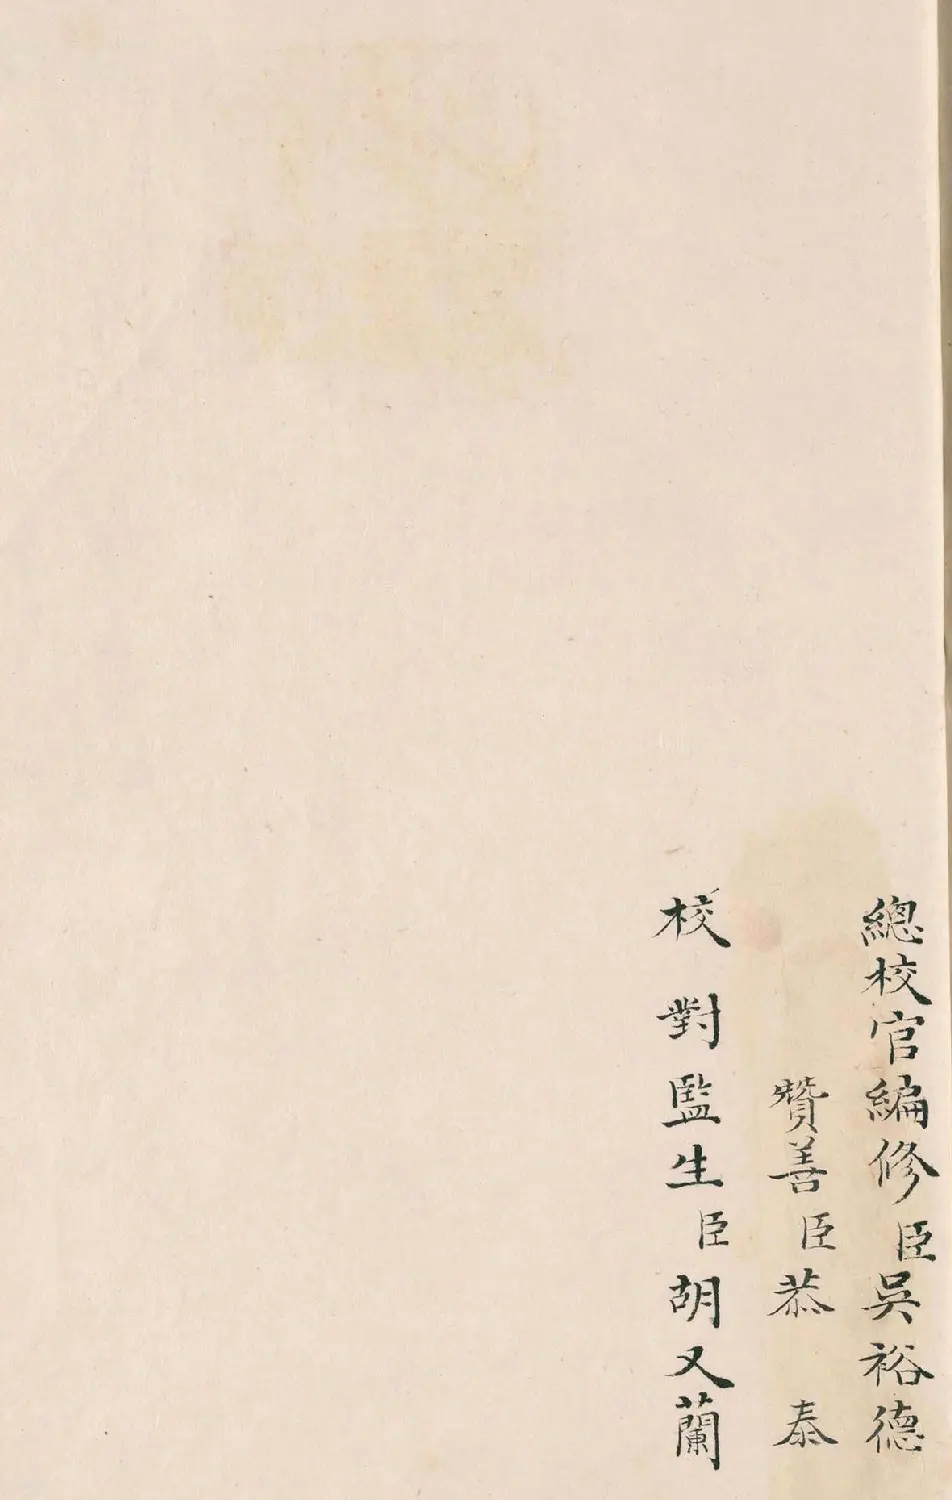 總校官編修臣吳裕德
贊善臣恭泰
校對監生臣胡又蘭